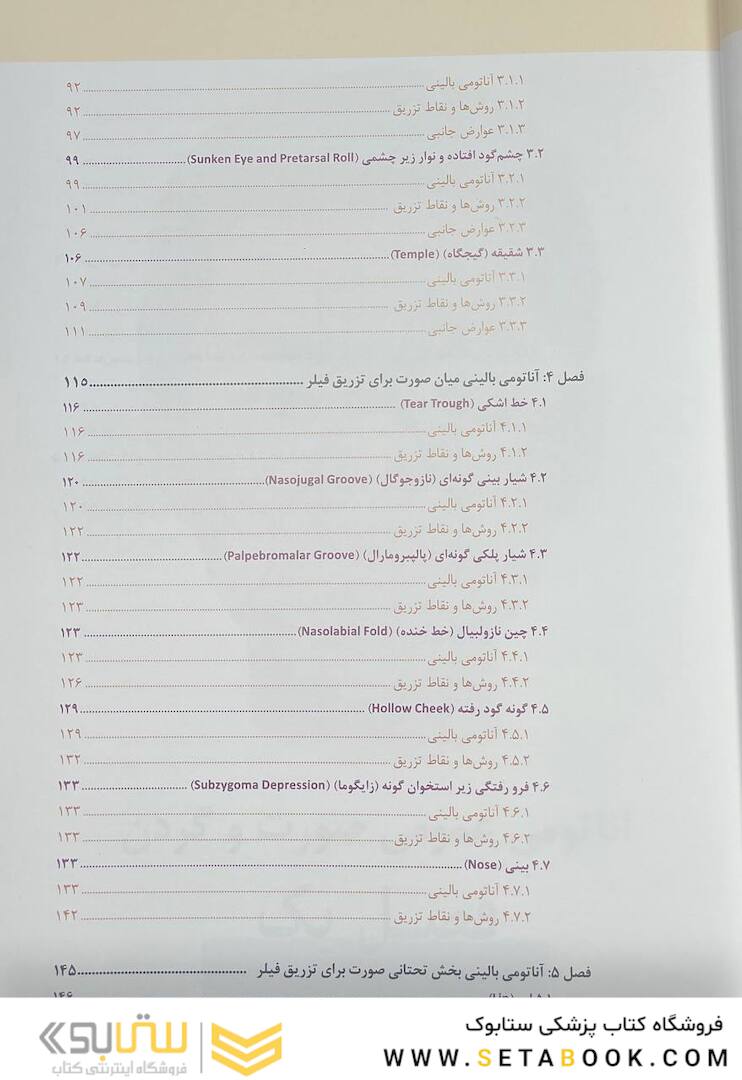 ۳.۱.۱ آناتومی بالینی ........ ۹۲
۳.۱.۲ روش‌ها و نقاط تزریق ........ ۹۲
۳.۱.۳ عوارض جانبی ........ ۹۷
۳.۲ چشم‌گود افتاده و نوار زیر چشمی (Sunken Eye and Pretarsal Roll) ........ ۹۹
۳.۲.۱ آناتومی بالینی ........ ۹۹
۳.۲.۲ روش‌ها و نقاط تزریق ........ ۱۰۱
۳.۲.۳ عوارض جانبی ........ ۱۰۶
۳.۳ شقیقه (گیجگاه) (Temple) ........ ۱۰۶
۳.۳.۱ آناتومی بالینی ........ ۱۰۷
۳.۳.۲ روش‌ها و نقاط تزریق ........ ۱۰۹
۳.۳.۳ عوارض جانبی ........ ۱۱۱
فصل ۴: آناتومی بالینی میان صورت برای تزریق فیلر ........ ۱۱۵
۴.۱ خط اشکی (Tear Trough) ........ ۱۱۶
۴.۱.۱ آناتومی بالینی ........ ۱۱۶
۴.۱.۲ روش‌ها و نقاط تزریق ........ ۱۱۶
۴.۲ شیار بینی گونه‌ای (نازوجوگال) (Nasojugal Groove) ........ ۱۲۰
۴.۲.۱ آناتومی بالینی ........ ۱۲۰
۴.۲.۲ روش‌ها و نقاط تزریق ........ ۱۲۲
۴.۳ شیار پلکی گونه‌ای (پالپبرومارال) (Palpebromalar Groove) ........ ۱۲۲
۴.۳.۱ آناتومی بالینی ........ ۱۲۲
۴.۳.۲ روش‌ها و نقاط تزریق ........ ۱۲۳
۴.۴ چین نازولبیال (خط خنده) (Nasolabial Fold) ........ ۱۲۳
۴.۴.۱ آناتومی بالینی ........ ۱۲۳
۴.۴.۲ روش‌ها و نقاط تزریق ........ ۱۲۶
۴.۵ گونه گود رفته (Hollow Cheek) ........ ۱۲۹
۴.۵.۱ آناتومی بالینی ........ ۱۲۹
۴.۵.۲ روش‌ها و نقاط تزریق ........ ۱۳۲
۴.۶ فرو رفتگی زیر استخوان گونه (زایگوما) (Subzygoma Depression) ........ ۱۳۳
۴.۶.۱ آناتومی بالینی ........ ۱۳۳
۴.۶.۲ روش‌ها و نقاط تزریق ........ ۱۳۳
۴.۷ بینی (Nose) ........ ۱۳۳
۴.۷.۱ آناتومی بالینی ........ ۱۳۳
۴.۷.۲ روش‌ها و نقاط تزریق ........ ۱۴۲
فصل ۵: آناتومی بالینی بخش تحتانی صورت برای تزریق فیلر ........ ۱۴۵
فروشگاه کتاب پزشکی ستابوک
WWW.SETABOOK.COM
ستابوک
فروشگاه اینترنتی کتاب